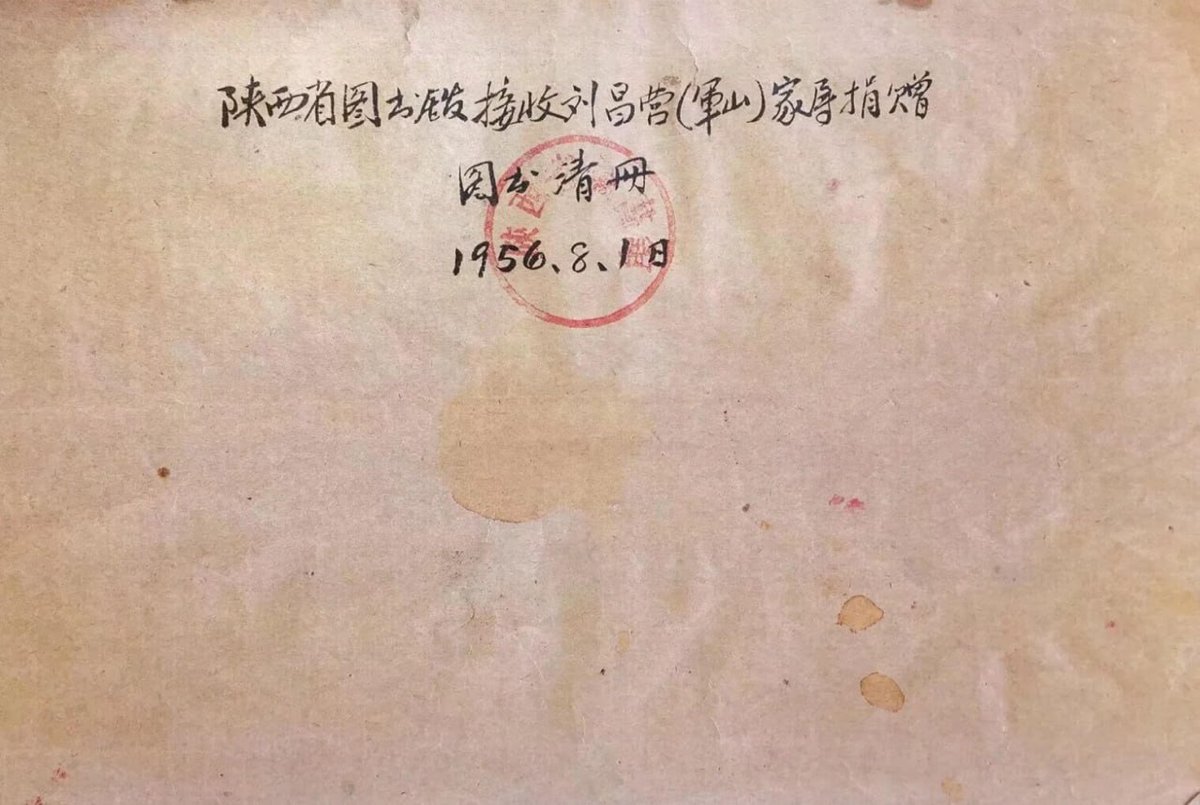 陕西省图书馆接收刘昌营(軍山)家属捐赠
图书清册
1956、8、1日